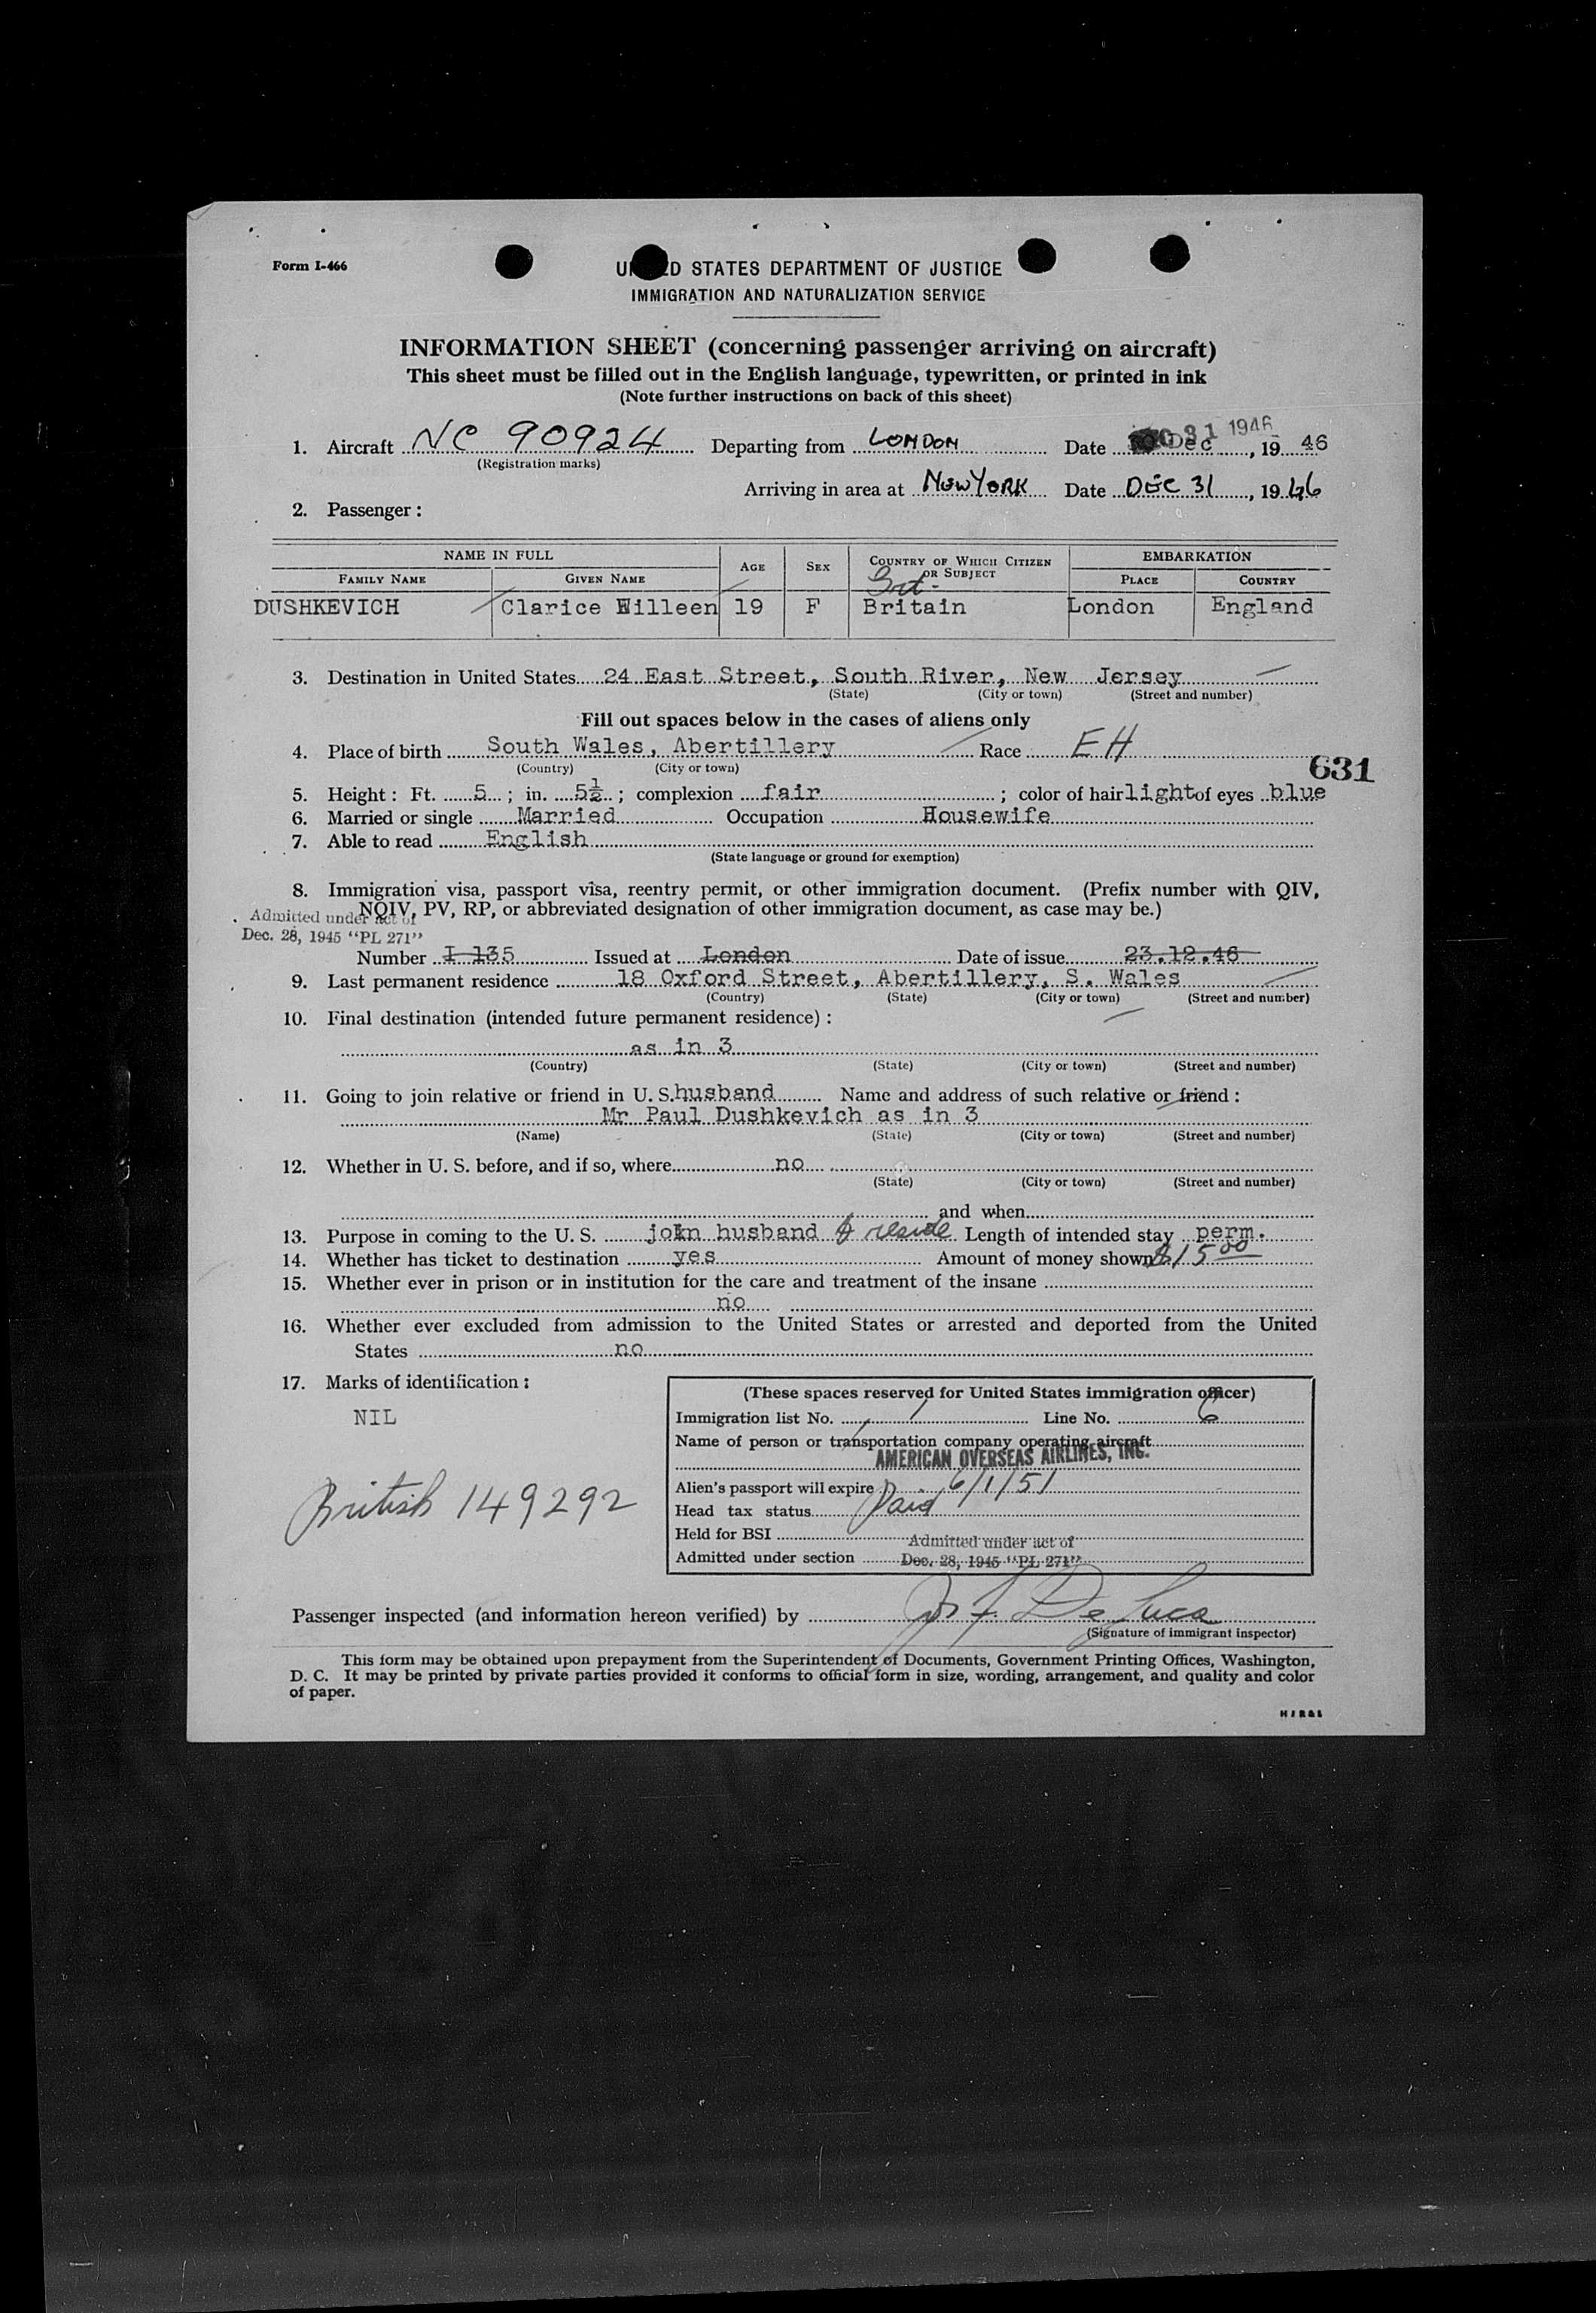 Form I-466
UNITED STATES DEPARTMENT OF JUSTICE
IMMIGRATION AND NATURALIZATION SERVICE
INFORMATION SHEET (concerning passenger arriving on aircraft)
This sheet must be filled out in the English language, typewritten, or printed in ink
(Note further instructions on back of this sheet)
1. Aircraft NC 90924 Departing from LONDON Date Dec, 19 46
DEC 31 1946
(Registration marks)
Arriving in area at NEW YORK Date DEC 31, 19 46
2. Passenger:
NAME IN FULL AGE SEX COUNTRY OF WHICH CITIZEN OR SUBJECT EMBARKATION
FAMILY NAME GIVEN NAME PLACE COUNTRY
DUSHKEVICH Clarice Eilleen 19 F Britain London England
3. Destination in United States 24 East Street, South River, New Jersey
(State) (City or town) (Street and number)
Fill out spaces below in the cases of aliens only
4. Place of birth South Wales, Abertillery Race EH
(Country) (City or town)
631
5. Height: Ft. 5; in. 5½; complexion fair; color of hair light of eyes blue
6. Married or single Married Occupation Housewife
7. Able to read English
(State language or ground for exemption)
8. Immigration visa, passport visa, reentry permit, or other immigration document. (Prefix number with QIV,
NQIV, PV, RP, or abbreviated designation of other immigration document, as case may be.)
Admitted under act of
Dec. 28, 1945 "PL 271"
Number I 135 Issued at London Date of issue 23.12.46
9. Last permanent residence 18 Oxford Street, Abertillery, S. Wales
(Country) (State) (City or town) (Street and number)
10. Final destination (intended future permanent residence):
as in 3
(Country) (State) (City or town) (Street and number)
11. Going to join relative or friend in U. S. husband Name and address of such relative or friend:
Mr Paul Dushkevich as in 3
(Name) (State) (City or town) (Street and number)
12. Whether in U. S. before, and if so, where no
(State) (City or town) (Street and number)
and when
13. Purpose in coming to the U. S. join husband & reside Length of intended stay perm.
14. Whether has ticket to destination yes Amount of money shown $15 00
15. Whether ever in prison or in institution for the care and treatment of the insane
no
16. Whether ever excluded from admission to the United States or arrested and deported from the United
States no
17. Marks of identification:
NIL
British 149292
(These spaces reserved for United States immigration officer)
Immigration list No. 1 Line No. 6
Name of person or transportation company operating aircraft
AMERICAN OVERSEAS AIRLINES, INC.
Alien's passport will expire 6/1/51
Head tax status Paid
Held for BSI
Admitted under section Admitted under act of
Dec. 28, 1945 "PL 271"
Passenger inspected (and information hereon verified) by Jos F. De Luca
(Signature of immigrant inspector)
This form may be obtained upon prepayment from the Superintendent of Documents, Government Printing Offices, Washington,
D. C. It may be printed by private parties provided it conforms to official form in size, wording, arrangement, and quality and color
of paper.